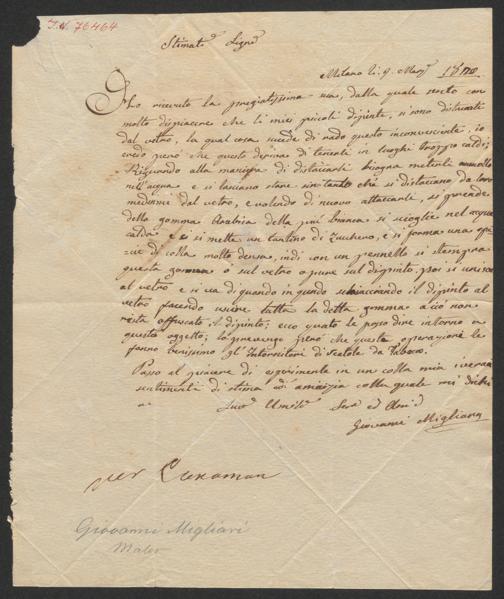 I.N. 76464
Stimato Sigre
Milano li 9 Marzo
Ho ricevuto la pregiatissima sua, dalla quale sento con
molto dispiacere che li miei piccoli dipinti, si sono distaccati
dal vetro, la qual cosa succede di rado questo inconveniente, io
credo però che questo derivi di tenerli in luoghi troppo caldi;
Riguardo alla maniera di distaccarli bisogna metterli
nell'acqua e si lasciano stare sintanto che si distaccano da loro
medesimi dal vetro, e volendo di nuovo attaccarli, si prende
della gomma Arabica della più bianca si scioglie nel acqua
calda e si mette un tantino di Zucchero, e si forma una
di colla molto densa, indi con un pennello si stempra
questa gomma o sul vetro o pure sul dipinto, poi si unisce
al vetro e si va di quando in quando schiacciando il dipinto al
vetro facendo unire tutta la detta gomma acciò non
resta offuscato il dipinto; ecco quanto le posso dire intorno a
questo oggetto; la prevengo però che questa operazione la
fanno benissimo gl' Intornitori di Scatole da Tabacco.
Passo al piacere di esprimerle in un colla mia
sentimenti di stima ed amicizia colla quale mi dichi
Suo Umilo Servo ed Amico
Giovanni Migliara
per
Giovanni Migliari
Maler